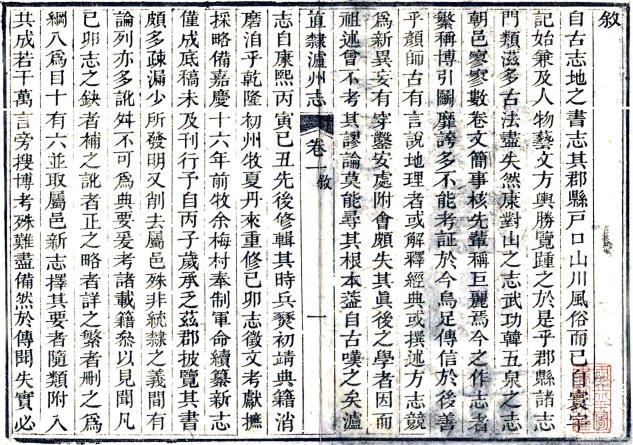 敘
自古志地之書志其郡縣戶口山川風俗而已自寰宇
記始兼及人物藝文方輿勝覽踵之於是乎郡縣諸志
門類滋多古法盡失然康對山之志武功韓五泉之志
朝邑寥寥數卷文簡事核先輩稱巨麗焉今之作志者
繁稱博引鬭靡誇多不能考証於今烏足傳信於後善
乎顏師古有言說地理者或解釋經典或撰述方志競
為新異妄有穿鑿安處附會頗失其眞後之學者因而
祖述曾不考其謬論莫能尋其根本葢自古嘆之矣瀘
直隸瀘州志 卷一 敘 一
志自康熙丙寅己丑先後修輯其時兵燹初靖典籍消
磨洎乎乾隆初州牧夏丹來重修己卯志徵文考獻摭
採略備嘉慶十六年前牧余梅村奉制軍命續纂新志
僅成底稿未及刊行予自丙子歲承乏茲郡披覽其書
頗多疎漏少所發明又削去屬邑殊非統隸之義間有
論列亦多訛舛不可為典要爰考諸載籍叅以見聞凡
己卯志之缺者補之訛者正之略者詳之繁者刪之為
綱八為目十有六並取屬邑新志擇其要者隨類附入
共成若干萬言旁搜博考殊難盡備然於傳聞失實必